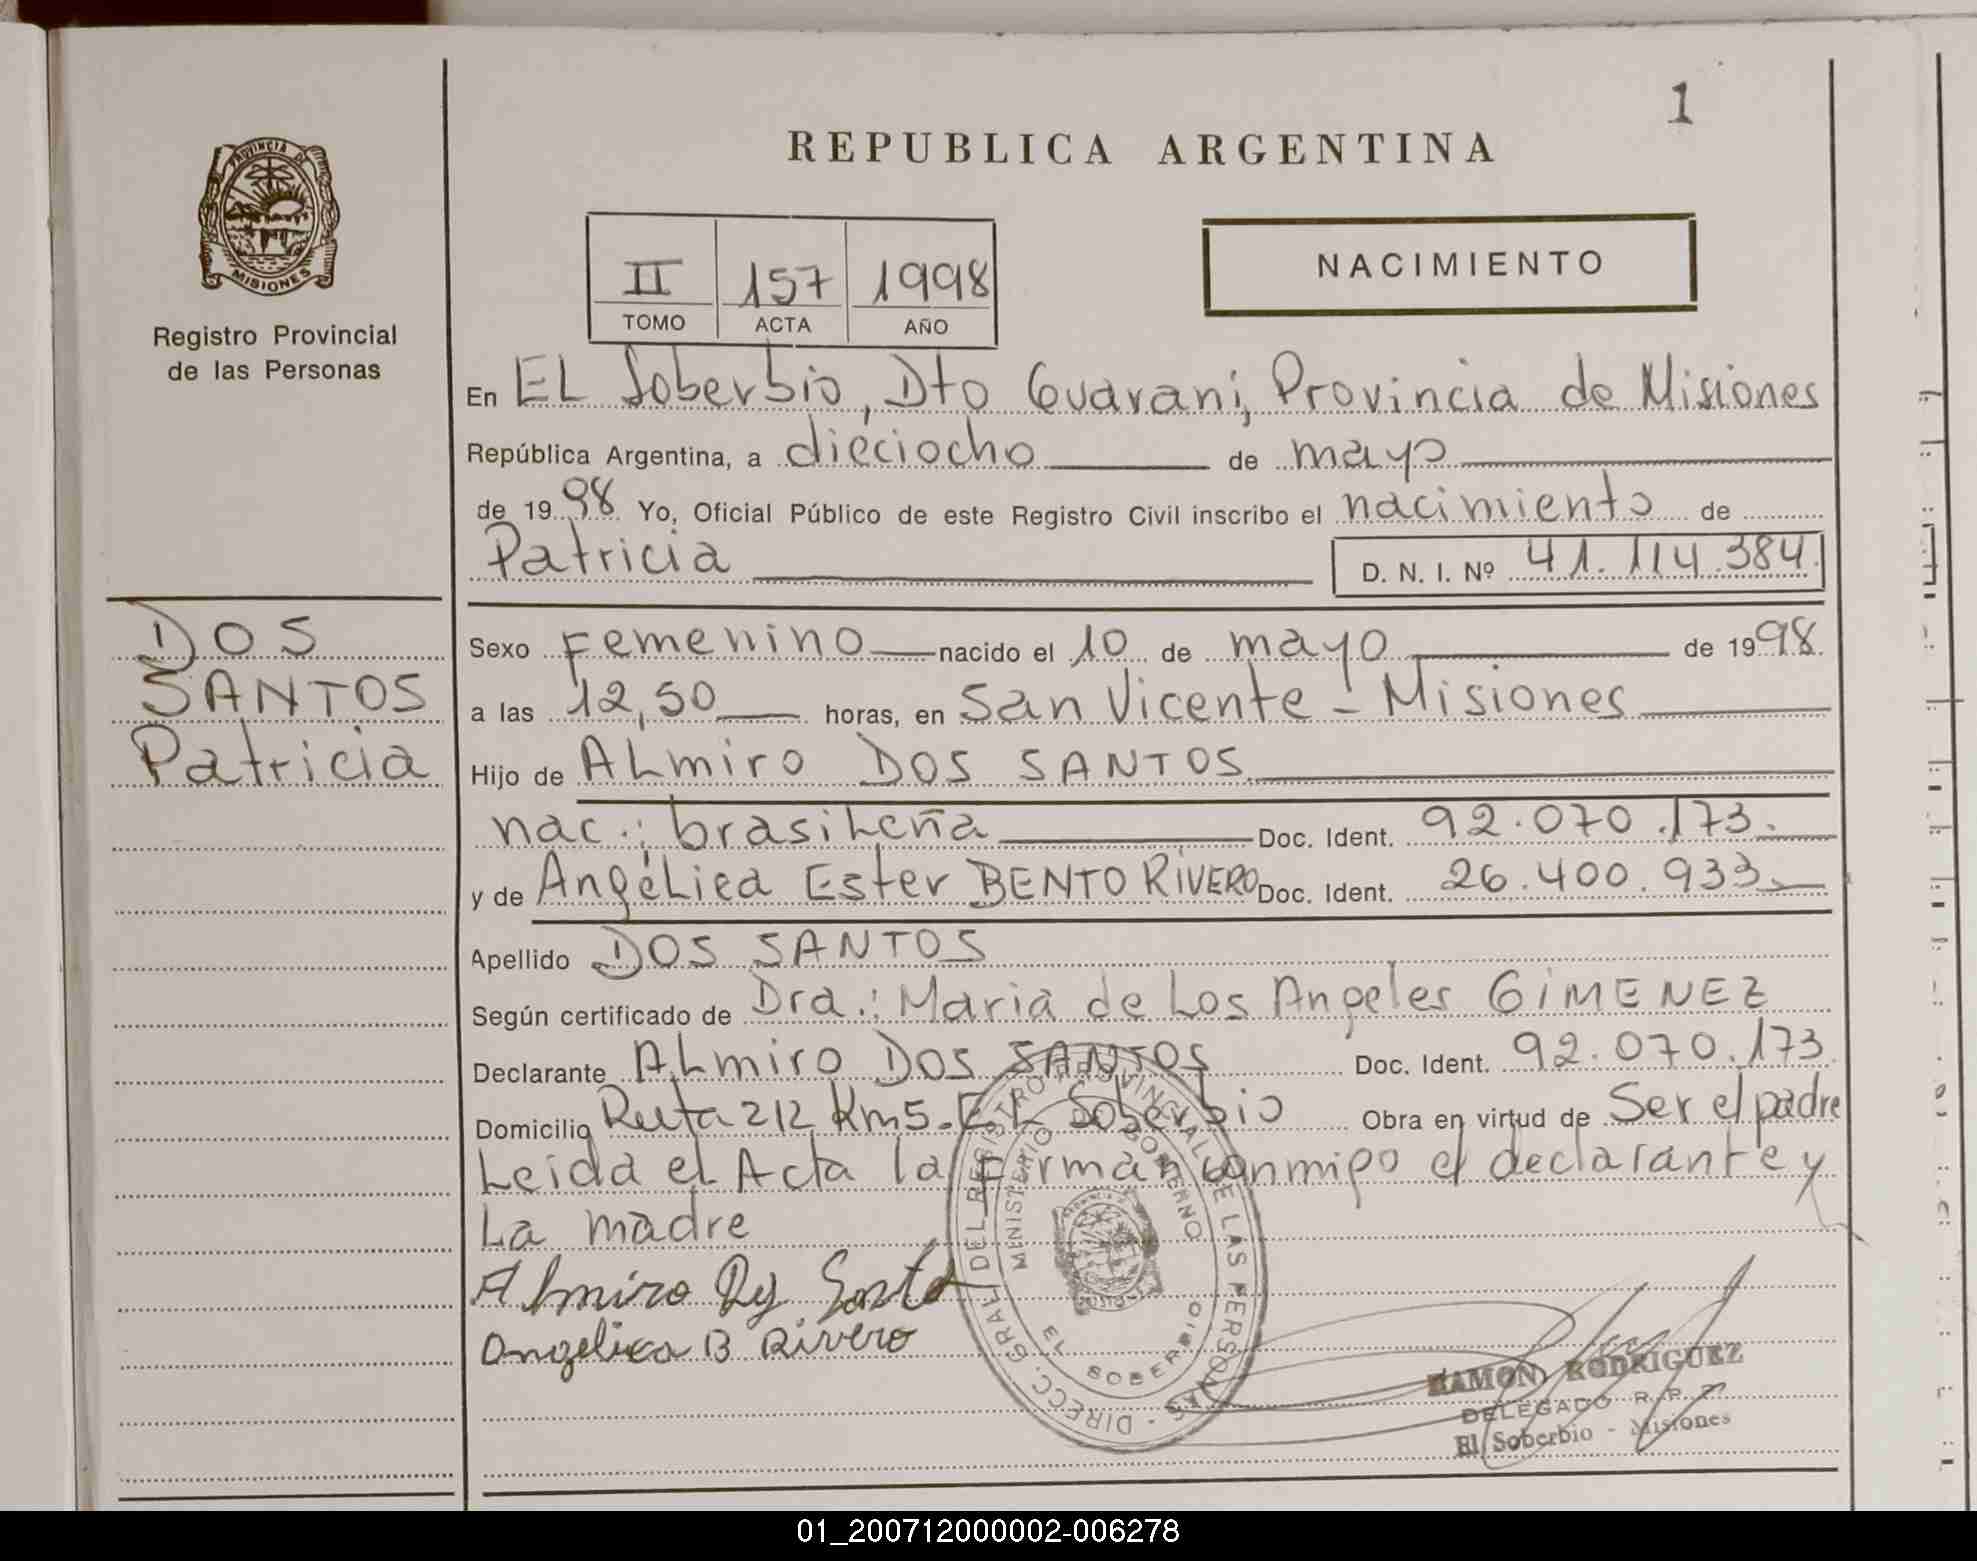 1
REPUBLICA ARGENTINA
PROVINCIA DE
MISIONES
Registro Provincial
de las Personas
II 157 1998
TOMO ACTA AÑO
NACIMIENTO
En EL Soberbio, Dto Guarani, Provincia de Misiones
República Argentina, a dieciocho de mayo
de 1998 Yo, Oficial Público de este Registro Civil inscribo el nacimiento de
Patricia D. N. I. Nº 41.114.384
DOS
SANTOS
Patricia
Sexo Femenino nacido el 10 de mayo de 1998
a las 12,50 horas, en San Vicente - Misiones
Hijo de ALmiro DOS SANTOS
nac.: brasiLeña Doc. Ident. 92.070.173.
y de AngéLica Ester BENTO RIVERO Doc. Ident. 26.400.933
Apellido DOS SANTOS
Según certificado de Dra.: Maria de Los Angeles GIMENEZ
Declarante ALmiro DOS SANTOS Doc. Ident. 92.070.173
Domicilio Ruta 212 Km5. EL Soberbio Obra en virtud de Ser el padre
Leida el Acta la firman conmigo el declarante y
La madre
Almiro Dos Santos
Angelica B Rivero
DIRECC. GRAL. DEL REGISTRO PROVINCIAL DE LAS PERSONAS
MINISTERIO DE GOBIERNO
EL SOBERBIO
RAMON RODRIGUEZ
DELEGADO R. P. P.
El Soberbio - Misiones
01_200712000002-006278